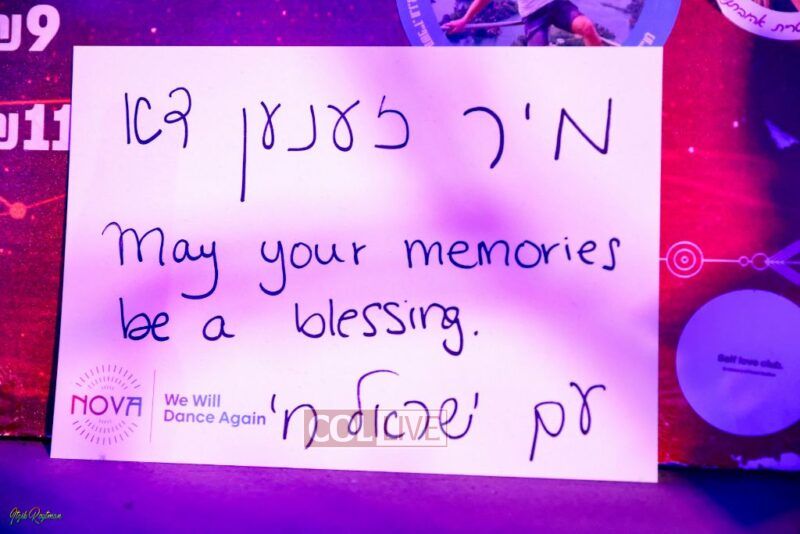 ₪9
₪11
מיר זענען דא
May your memories
be a blessing.
NOVA
We Will
Dance Again
עם ישראל חי
COLLIVE
Self love club.
Itzik Roytman